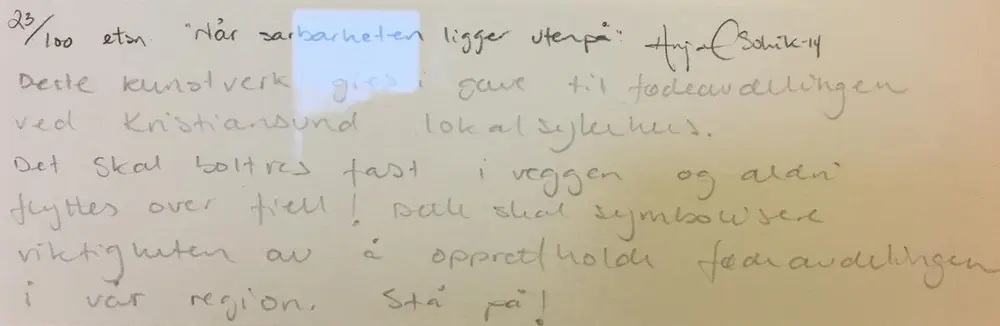 23/100 etsn "Når sarbarheten ligger utenpå" -14
Dette kunstverk gies i gave til fødeavdelingen
ved Kristiansund lokalsykehus.
Det skal boltres fast i veggen og aldri
flyttes over fjell! Dette skal symbolisere
viktigheten av å opprettholde fødeavdelingen
i vår region. Stå på!